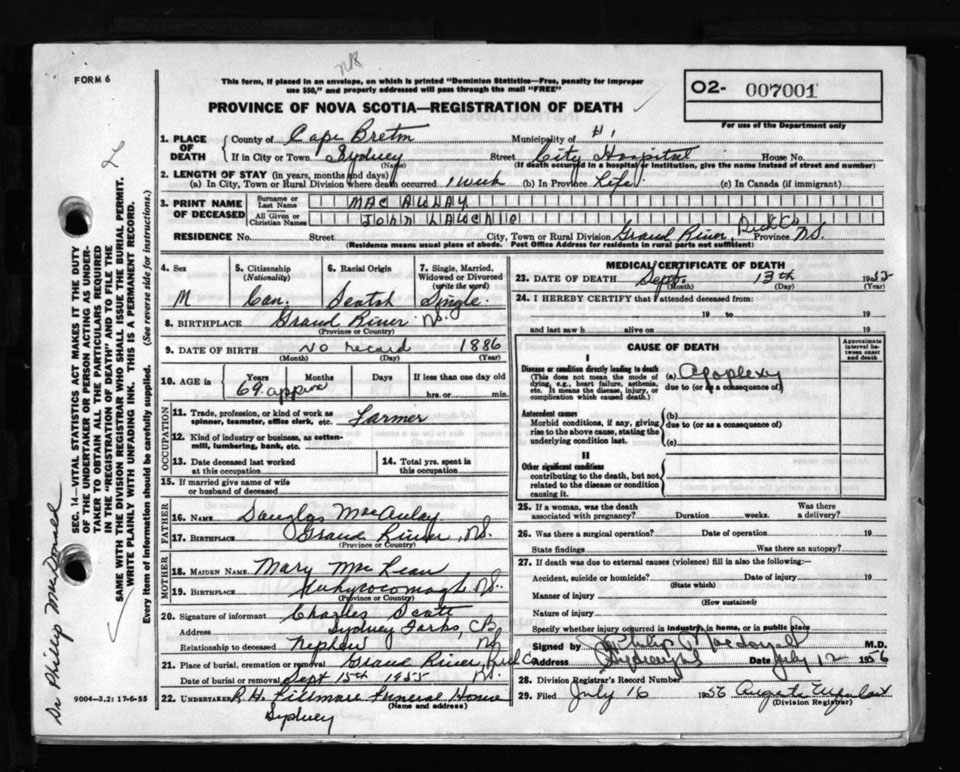 NB
FORM 6
This form, if placed in an envelope, on which is printed "Dominion Statistics—Free, penalty for improper
use $50," and properly addressed will pass through the mail "FREE"
PROVINCE OF NOVA SCOTIA—REGISTRATION OF DEATH
O2- 007001
For use of the Department only
1. PLACE OF DEATH County of Cape Breton Municipality of
If in City or Town Sydney Street City Hospital House No.
(Name) (If death occurred in a hospital or institution, give the name instead of street and number)
2. LENGTH OF STAY (in years, months and days)
(a) In City, Town or Rural Division where death occurred 1 week (b) In Province Life (c) In Canada (if immigrant)
3. PRINT NAME OF DECEASED Surname or Last Name MAC AULAY
All Given or Christian Names JOHN LAUCHIE
RESIDENCE No. Street City, Town or Rural Division Grand River, Rich Co. Province N.S.
(Residence means usual place of abode. Post Office Address for residents in rural parts not sufficient)
4. Sex
M
5. Citizenship
(Nationality)
Can.
6. Racial Origin
Scotch
7. Single, Married,
Widowed or Divorced
(write the word)
Single.
8. BIRTHPLACE Grand River N.S.
(Province or Country)
9. DATE OF BIRTH No record 1886
(Month) (Day) (Year)
10. AGE in Years Months Days If less than one day old
69 approx hrs. or min.
OCCUPATION
11. Trade, profession, or kind of work as
spinner, teamster, office clerk, etc. Farmer
12. Kind of industry or business, as cotton-
mill, lumbering, bank, etc.
13. Date deceased last worked
at this occupation
14. Total yrs. spent in
this occupation
15. If married give name of wife
or husband of deceased
FATHER
16. NAME Douglas MacAulay
17. BIRTHPLACE Grand River, N.S.
(Province or Country)
MOTHER
18. MAIDEN NAME Mary MacLean
19. BIRTHPLACE Whycocomagh N.S.
(Province or Country)
20. Signature of informant Charles Scott
Address Sydney Forks, CB
Relationship to deceased Nephew NS
21. Place of burial, cremation or removal Grand River, Rich Co
Date of burial or removal Sept 15th 1955 NS.
22. UNDERTAKER R.H. Fillmore Funeral Home
(Name and address)
Sydney
MEDICAL CERTIFICATE OF DEATH
23. DATE OF DEATH Sept. 13th 19
(Month) (Day) (Year)
24. I HEREBY CERTIFY that I attended deceased from:
19 to 19
and last saw h alive on 19
CAUSE OF DEATH
Approximate
interval be-
tween onset
and death
I
Disease or condition directly leading to death
(This does not mean the mode of
dying, e.g., heart failure, asthenia,
etc. It means the disease, injury, or
complication which caused death.)
(a) Apoplexy
due to (or as a consequence of)
Antecedent causes
Morbid conditions, if any, giving
rise to the above cause, stating the
underlying condition last.
(b)
due to (or as a consequence of)
(c)
II
Other significant conditions
contributing to the death, but not
related to the disease or condition
causing it.
25. If a woman, was the death
associated with pregnancy? Duration weeks. Was there
a delivery?
26. Was there a surgical operation?
State findings Was there an autopsy?
27. If death was due to external causes (violence) fill in also the following:—
Accident, suicide or homicide? Date of injury 19
(State which)
Manner of injury
(How sustained)
Nature of injury
Specify whether injury occurred in industry, in home, or in public place
Signed by Philip MacDonald M.D.
Address Sydney NS Date July 12 1956
28. Division Registrar's Record Number
29. Filed July 16 1956
(Division Registrar)
9004-3.2: 17-6-55
SEC. 14—VITAL STATISTICS ACT MAKES IT THE DUTY
OF THE UNDERTAKER OR PERSON ACTING AS UNDER-
TAKER TO OBTAIN ALL THE PARTICULARS REQUIRED
IN THE "REGISTRATION OF DEATH" AND TO FILE THE
SAME WITH THE DIVISION REGISTRAR WHO SHALL ISSUE THE BURIAL PERMIT.
WRITE PLAINLY WITH UNFADING INK. THIS IS A PERMANENT RECORD.
Every Item of Information should be carefully supplied. (See reverse side for instructions.)
Dr Phillip MacDonald